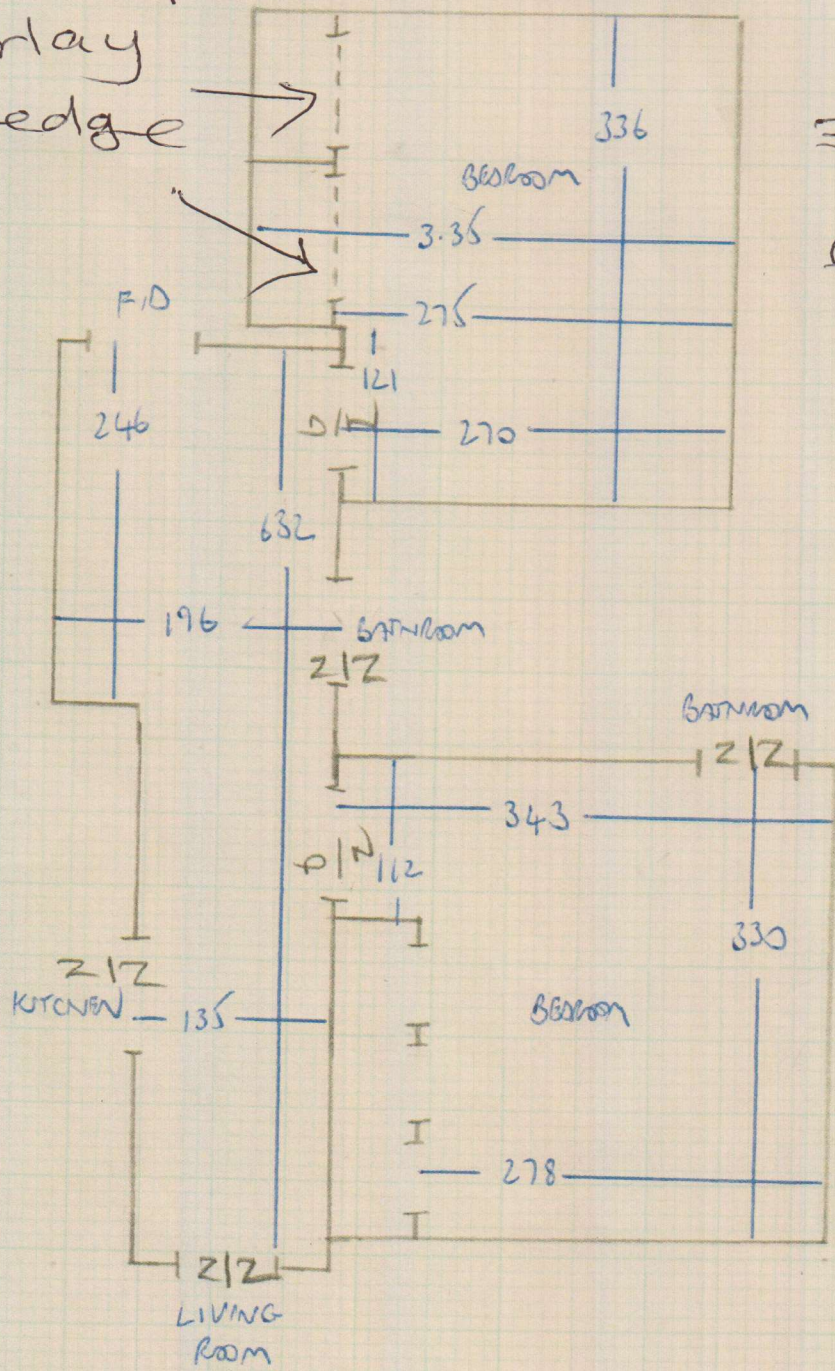 rlay
edge
336
BEDROOM
3.35
F.D
275
121
246
D/N
270
632
196
BATHROOM
2|2
BATHROOM
2|2
343
D/N
112
330
2|2
KITCHEN
135
BEDROOM
278
2|2
LIVING
ROOM